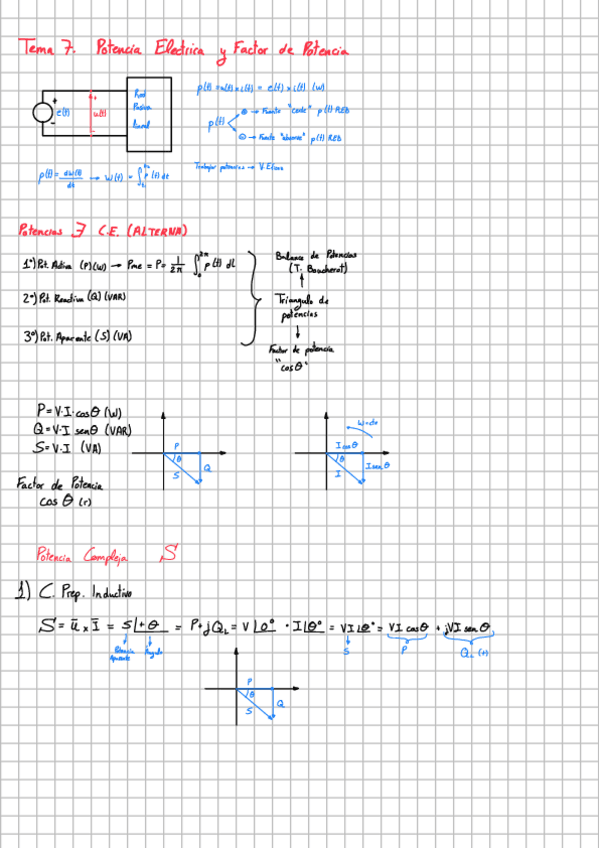 Tema 7. Potencia Electrica y Factor de Potencia
e(t)
u(t)
Red
Pasiva
Lineal
p(t) = u(t) x i(t) = e(t) x i(t) (w)
p(t)
⊕ → Fuente "cede" p(t) RED
⊖ → Fuente "absorve" p(t) RED
p(t) = dw(t)/dt → W(t) = ∫ p(t) dt
Trabajar potencias → V. Eficaz
Potencias ∃ C.E. (ALTERNA)
1º) Pot. Activa (P)(W) → Pme = P = 1/2π ∫₀^2π p(t) dt
2º) Pot. Reactiva (Q) (VAR)
3º) Pot. Aparente (S) (VA)
Balance de Potencias
(T. Boucherot)
Triangulo de
potencias
Factor de potencia
"cos θ"
P = V·I·cos θ (W)
Q = V·I sen θ (VAR)
S = V·I (VA)
Factor de Potencia
cos θ (r)
P
θ
S
Q
I cos θ
θ
I
I sen θ
Potencia Compleja S
1) C. Prep. Inductivo
S = ū x Ī = S∠+θ = P+jQL = V∠0° · I∠θ° = VI∠θ° = VI cos θ + jVI sen θ
Potencia
Aparente
Angulo
S
P
QL (+)
P
θ
S
Q